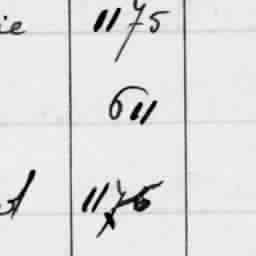 ie 1175
611
1175